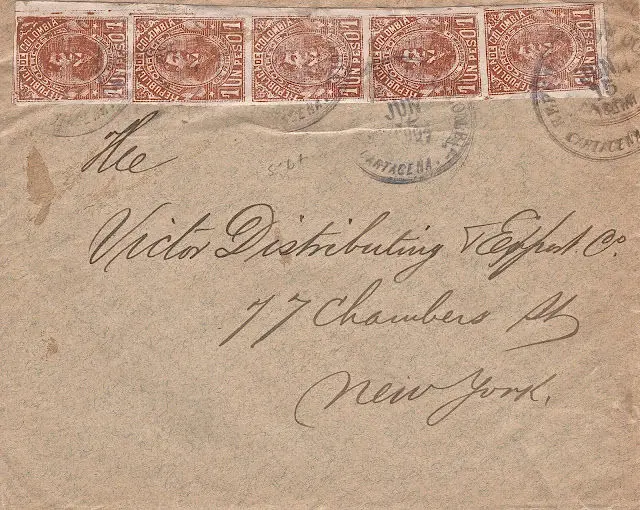 REPUBLICA DE COLOMBIA
1 UN PESO 1
REPUBLICA DE COLOMBIA
1 UN PESO 1
REPUBLICA DE COLOMBIA
1 UN PESO 1
REPUBLICA DE COLOMBIA
1 UN PESO 1
REPUBLICA DE COLOMBIA
1 UN PESO 1
JUN
CARTAGENA.
CARTAGENA
The
Victor Distributing & Export Co.
77 Chambers St
New York.